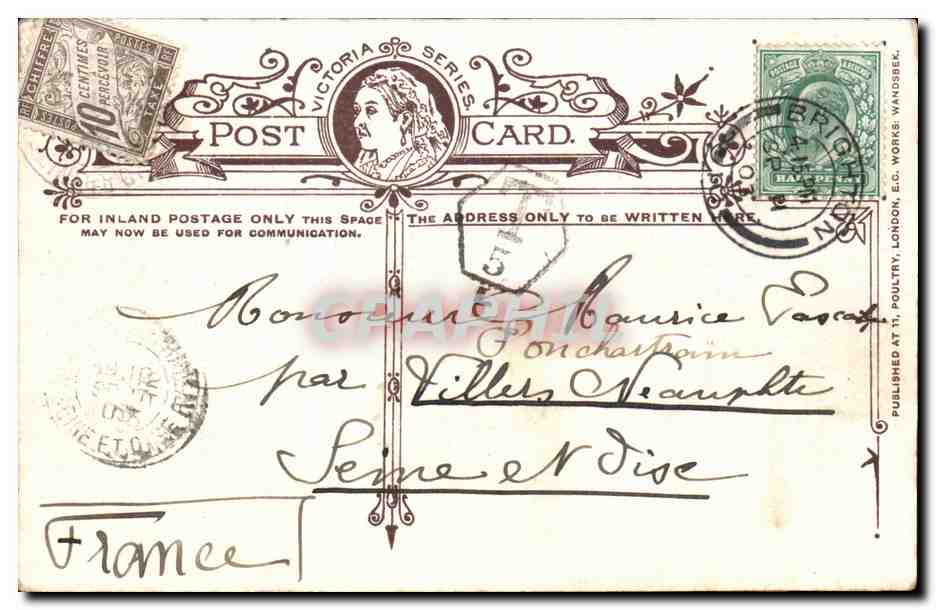 CHIFFRE TAXE
POSTES
10 CENTIMES À PERCEVOIR
VICTORIA SERIES.
POST CARD.
POSTAGE & REVENUE
HALFPENNY
BRIGHTON
FOR INLAND POSTAGE ONLY THIS SPACE
MAY NOW BE USED FOR COMMUNICATION.
THE ADDRESS ONLY TO BE WRITTEN HERE.
T
5
Monsieur Maurice
Ponchartrain
par Villers Neauphle
Seine et Oise
France
SEINE ET OISE
CPARAMA
PUBLISHED AT 11, POULTRY, LONDON, E.C. WORKS: WANDSBEK.